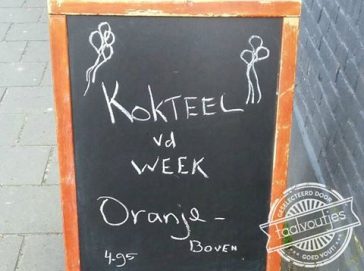 KOKTEEL
vd
WEEK
Oranje -
BOVEN
4.95
GESELECTEERD DOOR
taalvoutjes
GOED VOUT!